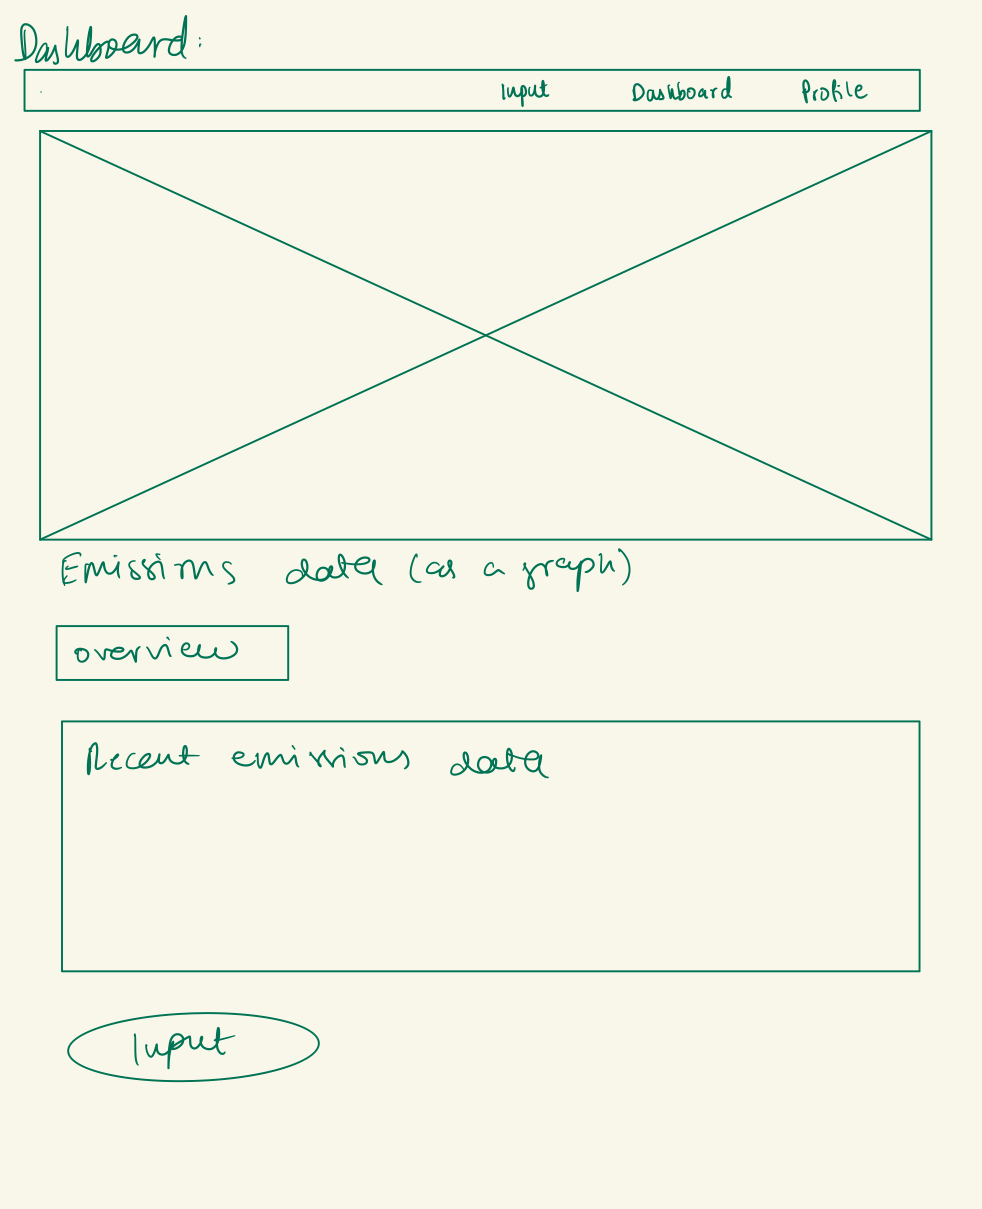 Dashboard:
Input Dashboard Profile
Emissions data (as a graph)
overview
Recent emissions data
Input